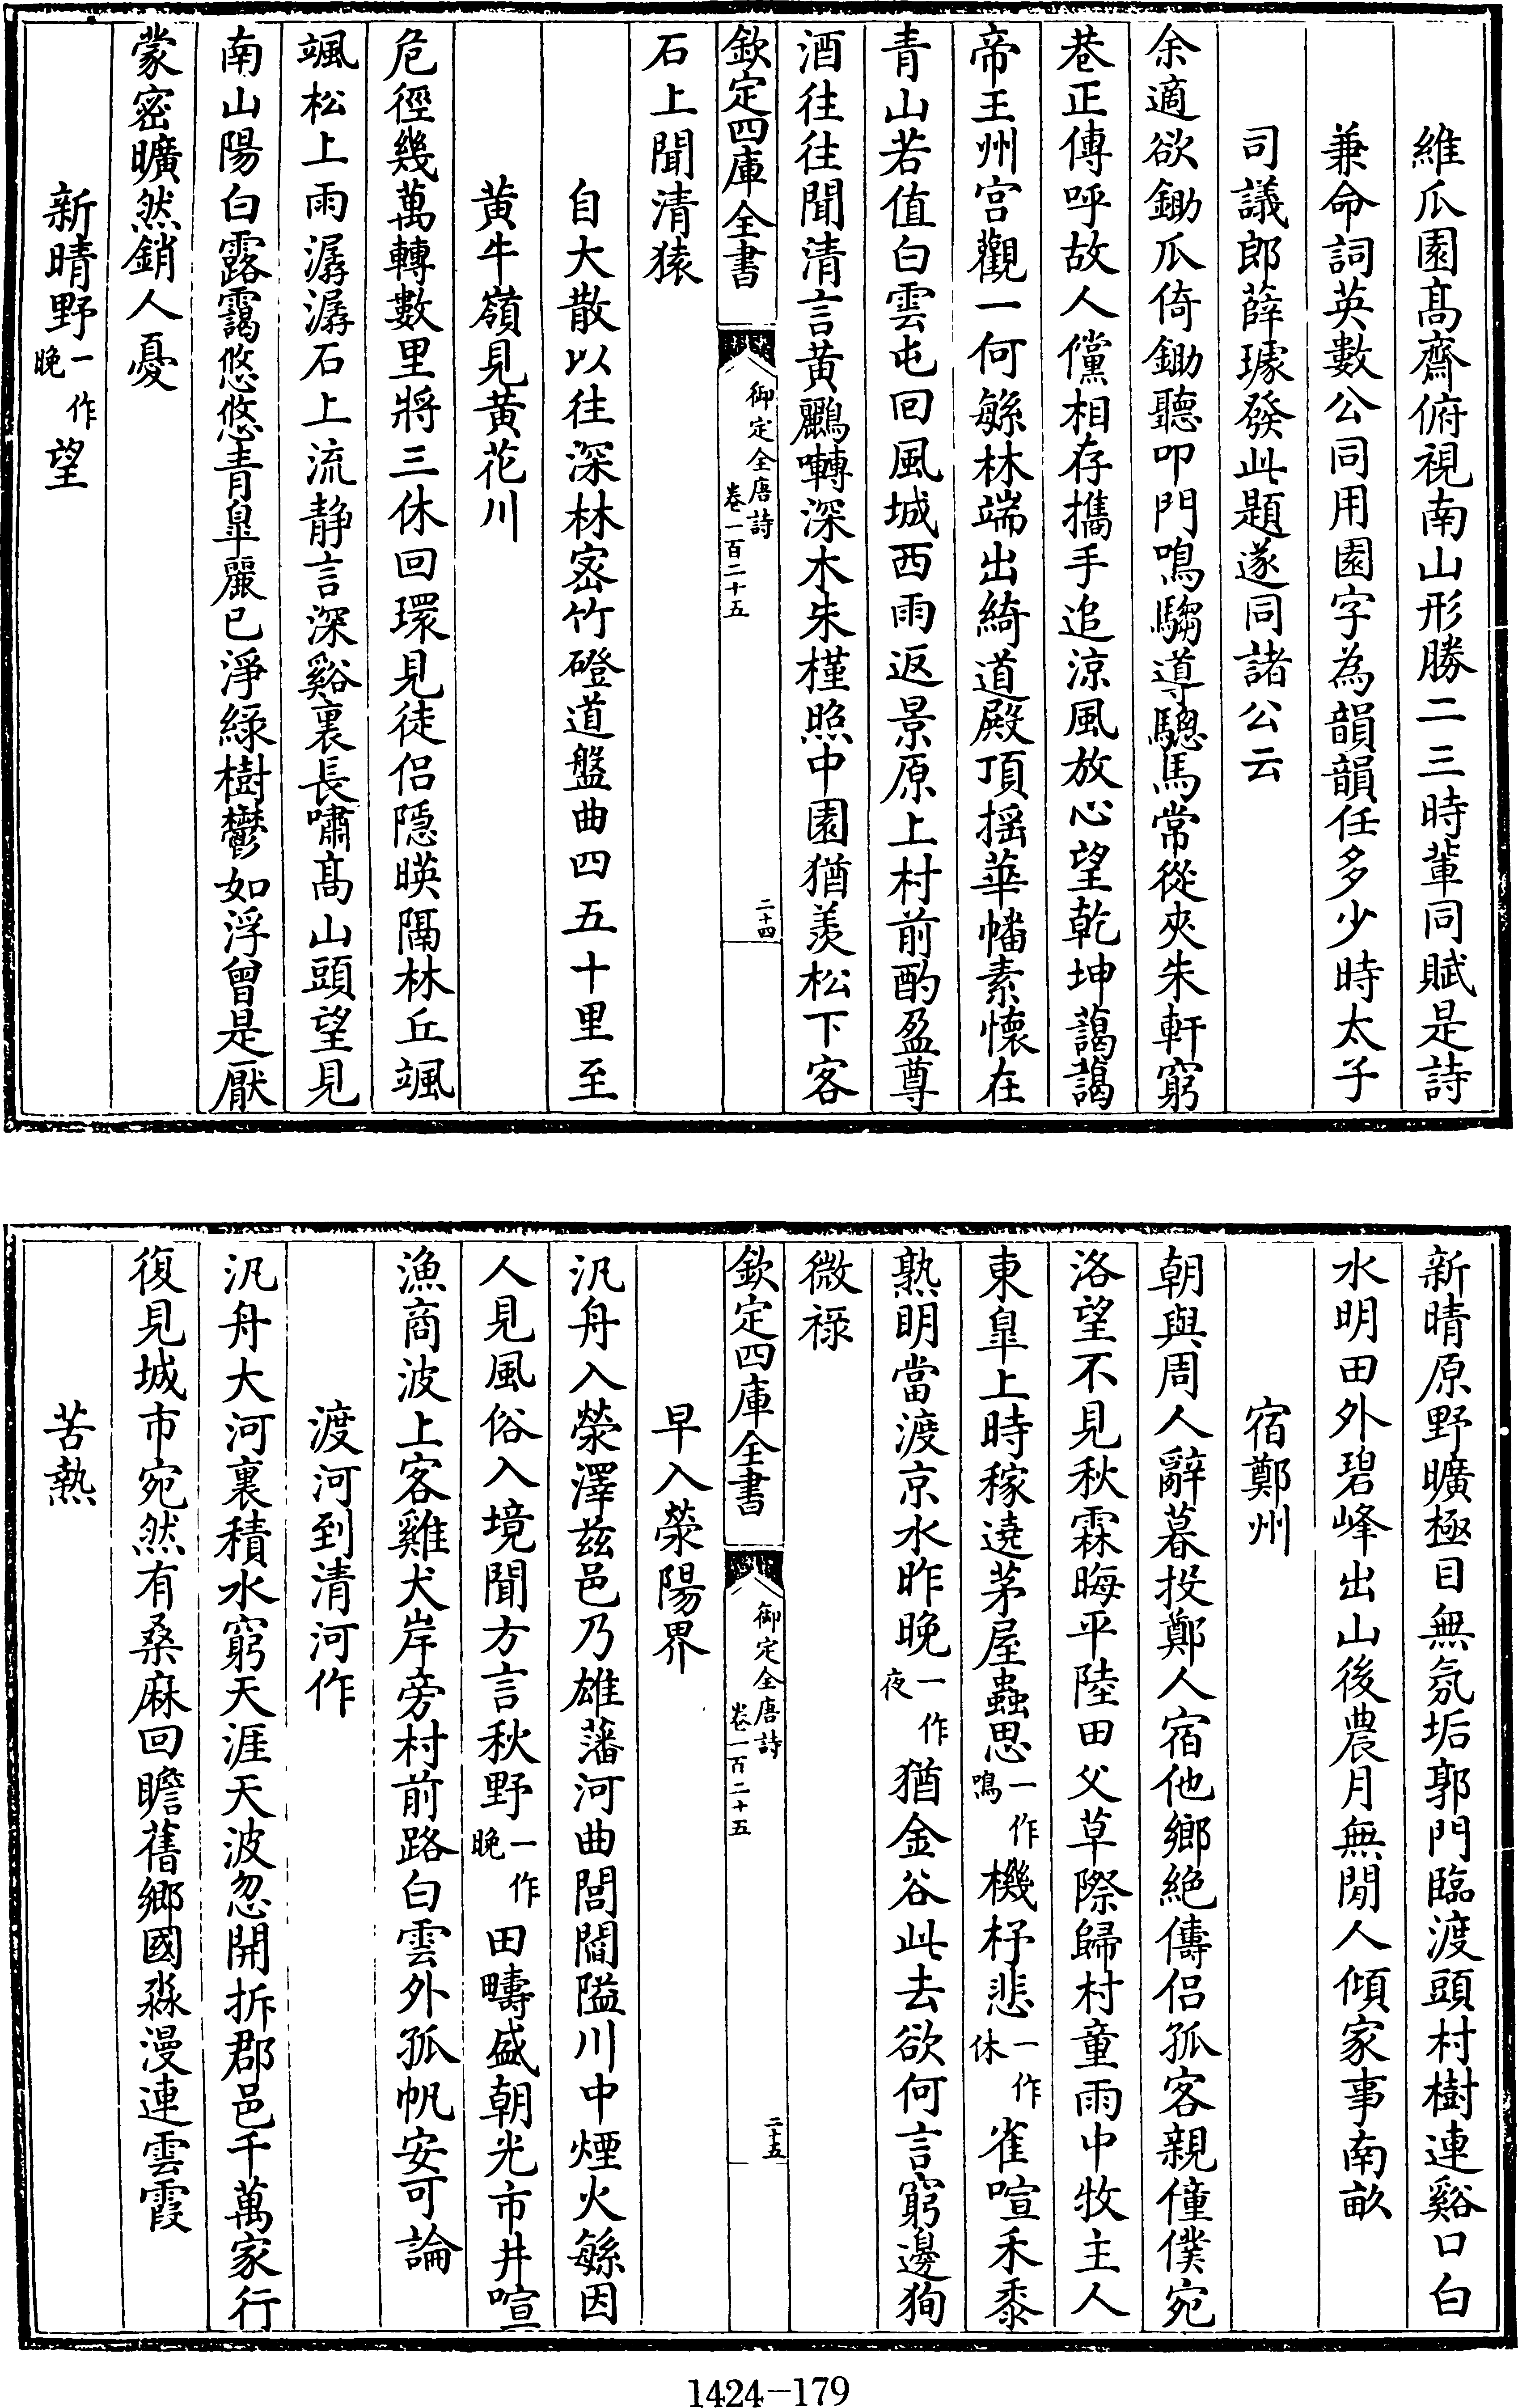 維瓜園髙齋俯視南山形勝二三時輩同賦是詩
兼命詞英數公同用園字為韻韻任多少時太子
司議郎薛璩發此題遂同諸公云
余適欲鋤瓜倚鋤聽叩門鳴騶導驄馬常從夾朱軒窮
巷正傳呼故人儻相存攜手追涼風放心望乾坤藹藹
帝王州宫觀一何繁林端出綺道殿頂揺華幡素懷在
青山若值白雲屯回風城西雨返景原上村前酌盈尊
酒往往聞清言黄鸝囀深木朱槿照中園猶羨松下客
欽定四庫全書
御定全唐詩
卷一百二十五
二十四
石上聞清猿
自大散以往深林密竹磴道盤曲四五十里至
黄牛嶺見黄花川
危徑幾萬轉數里將三休回環見徒侣隱暎隔林丘颯
颯松上雨潺潺石上流静言深谿裏長嘯髙山頭望見
南山陽白露靄悠悠青臯麗已淨緑樹鬱如浮曾是厭
蒙密曠然銷人憂
新晴野一作晚望
新晴原野曠極目無氛垢郭門臨渡頭村樹連谿口白
水明田外碧峰出山後農月無閒人傾家事南畝
宿鄭州
朝與周人辭暮投鄭人宿他鄉絶儔侣孤客親僮僕宛
洛望不見秋霖晦平陸田父草際歸村童雨中牧主人
東臯上時稼遶茅屋蟲思一作鳴機杼悲一作休雀喧禾黍
熟明當渡京水昨晚一作夜猶金谷此去欲何言窮邊徇
微禄
欽定四庫全書
御定全唐詩
卷一百二十五
二十五
早入滎陽界
汎舟入滎澤兹邑乃雄藩河曲閭閻隘川中煙火繁因
人見風俗入境聞方言秋野一作晚田疇盛朝光市井喧
漁商波上客雞犬岸旁村前路白雲外孤帆安可論
渡河到清河作
汎舟大河裏積水窮天涯天波忽開拆郡邑千萬家行
復見城市宛然有桑麻回瞻舊鄉國淼漫連雲霞
苦熱
1424-179